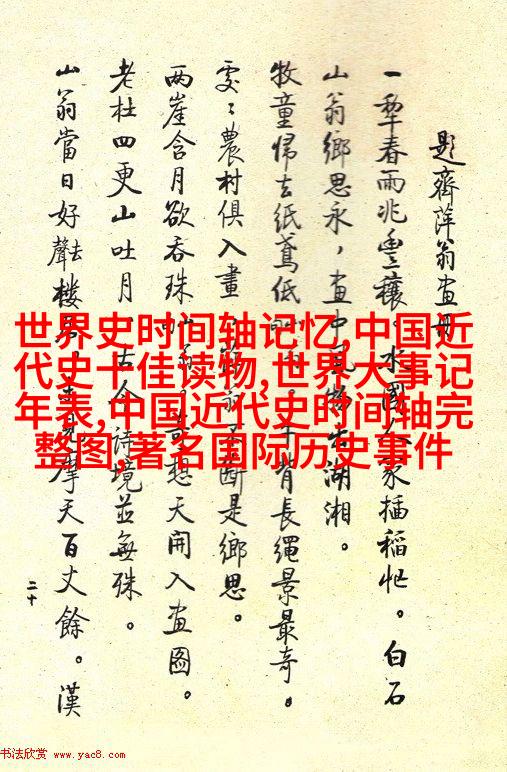 題齊萍翁畫冊
一犂春雨兆豐穰。水國家插稻忙。白石
山翁鄉思永,畫中風物出湖湘。
牧童歸去紙鳶低背長繩景最奇。
處〻農村俱入畫斷是鄉思。
兩崖含月欲吞珠想天開入畫圖。
老杜四更山吐月。古今詩境並無殊。
山翁當日好聲去樓摩天百丈餘。漢
二十
世界史时间轴记忆,中国近
代史十佳读物,世界大事记
年表,中国近代史时间轴完
整图,著名国际历史事件
书法欣赏 www.yac8.com